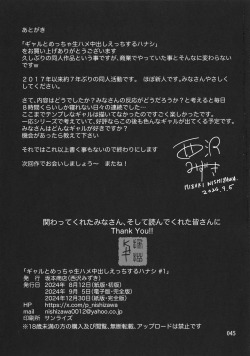 あとがき
「ギャルとめっちゃ生ハメ中出しえっちするハナシ」
をお買い上げありがとうございます
久しぶりの同人作品という事ですが、商業でやっていた事とそんなに変わらない
ですｗ
２０１７年以来約７年ぶりの同人活動です。ほぼ新人です。みなさんやさしく
してください。
さて、内容はどうでしたか？みなさんの反応がどうだろうか？と考えると毎日
8時間くらいしか寝れない日々の連続でした…
ここまでテンプレなギャルは描いてなかったのでさくさく楽しかったです。
一応シリーズで考えていて、好評ならこの後も色んなギャルが出てくる予定です。
みなさんはどんなギャルが好きですか？
機会があったら教えて下さい
それではこれ以上書く事もないので終わりにします
次回作でお会いしましょう～ またね！
西沢
みずき
MIZUKI NISHIZAWA
2024.9.5
関わってくれたみなさん、そして読んでくれた皆さんに
Thank You!!
「ギャルとめっちゃ生ハメ中出しえっちするハナシ #1」
発行 坂本商店(西沢みずき)
発行日 2024年 8月12日(紙版・初版)
2024年 9月 5日(電子版・完全版)
2024年12月30日(紙版・完全版)
HP https://x.com/p_nishizawa
mail nishizawa0012@yahoo.co.jp
印刷所 サンライズ
※18歳未満の方の購入及び閲覧、無断転載、アップロードは禁止です
045